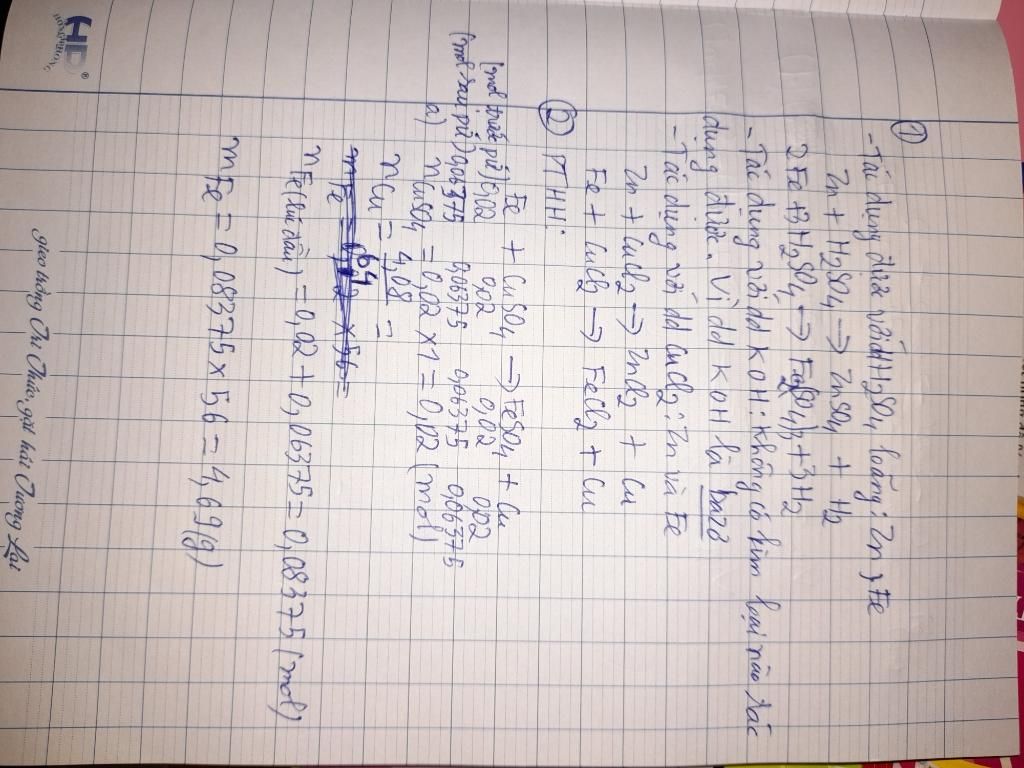 ①
- Tác dụng được với dd H₂SO₄ loãng: Zn, Fe
Zn + H₂SO₄ → ZnSO₄ + H₂
2Fe + 3H₂SO₄ → Fe₂(SO₄)₃ + 3H₂
- Tác dụng với dd KOH: Không có kim loại nào tác
dụng được. Vì dd KOH là bazơ
- Tác dụng với dd CuCl₂: Zn và Fe
Zn + CuCl₂ → ZnCl₂ + Cu
Fe + CuCl₂ → FeCl₂ + Cu
② PTHH:
Fe + CuSO₄ → FeSO₄ + Cu
(mol trước pứ) 0,02 0,02 0,02 0,02
(mol sau pứ) 0,06375 0,06375 0,06375
a) nCuSO₄ = 0,02 × 1 = 0,02 (mol)
nCu = 4,08 / 64 =
mFe = × 56 =
nFe (ban đầu) = 0,02 + 0,06375 = 0,08375 (mol)
mFe = 0,08375 × 56 = 4,69 (g)
gieo trồng Tri Thức, gặt hái Tương Lai
HD®